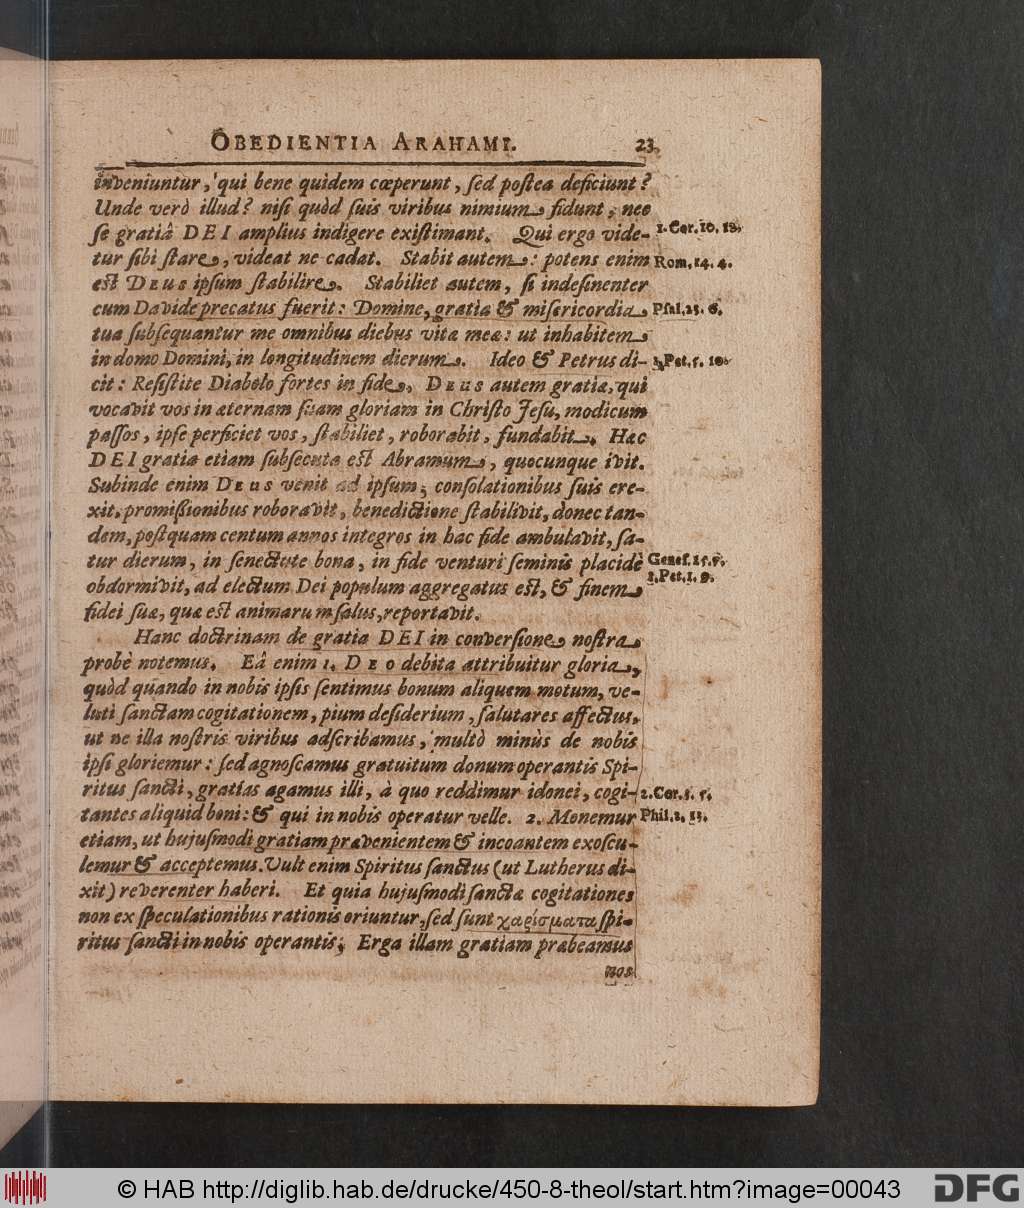 OBEDIENTIA ARAHAMI. 23.
inveniuntur, qui bene quidem cœperunt, ſed poſtea deficiunt?
Unde verò illud? niſi quòd ſuis viribus nimium fidunt, nec
ſe gratiâ DEI amplius indigere exiſtimant. Qui ergo vide-
1. Cor. 10. 12.
tur ſibi ſtare, videat ne cadat. Stabit autem: potens enim
Rom. 14. 4.
eſt DEUS ipſum ſtabilire. Stabiliet autem, ſi indeſinenter
cum Davide precatus fuerit: Domine, gratia & miſericordia
Pſal. 23. 6.
tua ſubſequantur me omnibus diebus vitæ meæ: ut inhabitem
in domo Domini, in longitudinem dierum. Ideo & Petrus di-
1. Pet. 5. 10.
cit: Reſiſtite Diabolo fortes in fide, DEUS autem gratiæ, qui
vocavit vos in æternam ſuam gloriam in Chriſto Jeſu, modicum
paſſos, ipſe perficiet vos, ſtabiliet, roborabit, fundabit. Hæc
DEI gratia etiam ſubſecuta eſt Abramum, quocunque ivit.
Subinde enim DEUS venit ad ipſum, conſolationibus ſuis ere-
xit, promiſſionibus roboravit, benedictione ſtabilivit, donec tan-
dem, poſtquam centum annos integros in hac fide ambulavit, ſa-
tur dierum, in ſenectute bona, in fide venturi ſeminis placidè
Geneſ. 25. 8.
obdormivit, ad electum Dei populum aggregatus eſt, & finem
1. Pet. 1. 9.
fidei ſuæ, quæ eſt animarum ſalus, reportavit.
Hanc doctrinam de gratia DEI in converſione noſtra
probè notemus. Eâ enim 1. DEO debita attribuitur gloria,
quòd quando in nobis ipſis ſentimus bonum aliquem motum, ve-
luti ſanctam cogitationem, pium deſiderium, ſalutares affectus,
ut ne illa noſtris viribus adſcribamus, multò minùs de nobis
ipſi gloriemur: ſed agnoſcamus gratuitum donum operantis Spi-
ritus ſancti, gratias agamus illi, à quo reddimur idonei, cogi-
2. Cor. 3. 5.
tantes aliquid boni: & qui in nobis operatur velle. 2. Monemur
Phil. 2. 13.
etiam, ut hujuſmodi gratiam prævenientem & incoantem exoſcu-
lemur & acceptemus. Vult enim Spiritus ſanctus (ut Lutherus di-
xit) reverenter haberi. Et quia hujuſmodi ſanctæ cogitationes
non ex ſpeculationibus rationis oriuntur, ſed ſunt χαρίσματα ſpi-
ritus ſancti in nobis operantis; Erga illam gratiam præbeamus
nos
© HAB http://diglib.hab.de/drucke/450-8-theol/start.htm?image=00043
DFG